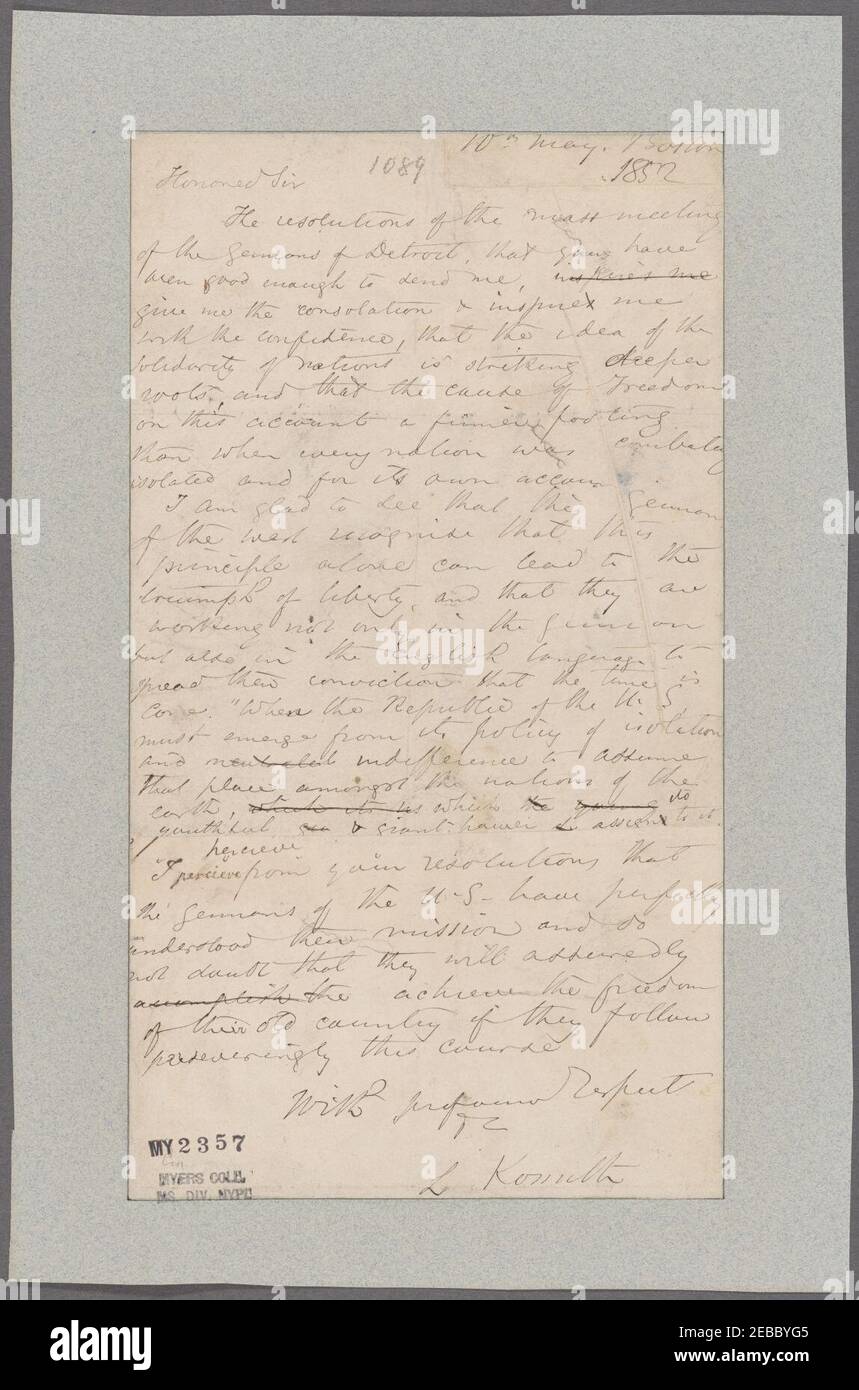 10th May. Boston
1089
1852
Honored Sir
The resolutions of the mass meeting
of the Germans of Detroit, that you have
been good enough to send me, inspires me
give me the consolation & inspire me
with the confidence, that the idea of the
solidarity of nations is striking deeper
roots, and that the cause of Freedom
on this account a firmer footing
than when every nation was combating
isolated and for its own accoun
I am glad to see that the German
of the west recognise that this
principle alone can lead to the
triumph of liberty, and that they are
working not only in the German
but also in the English language to
spread their conviction that the time is
Come. "When the Republic of the U. S.
must emerge from its policy of isolation
and neutral indifference to assume
that place amongst the nations of the
earth, which its us which the young its
youthful & giant power assign to it.
percieve
"I percieve from your resolutions that
the Germans of the U-S- have perfectly
understood their mission and do
not doubt that they will assuredly
accomplish the achieve the freedom
of their old country if they follow
perseveringly this course
With profound Respect
L Kossuth
MY 2357
MYERS COLL.
MS. DIV. NYPL
alamy
Image ID: 2EBBYG5
www.alamy.com